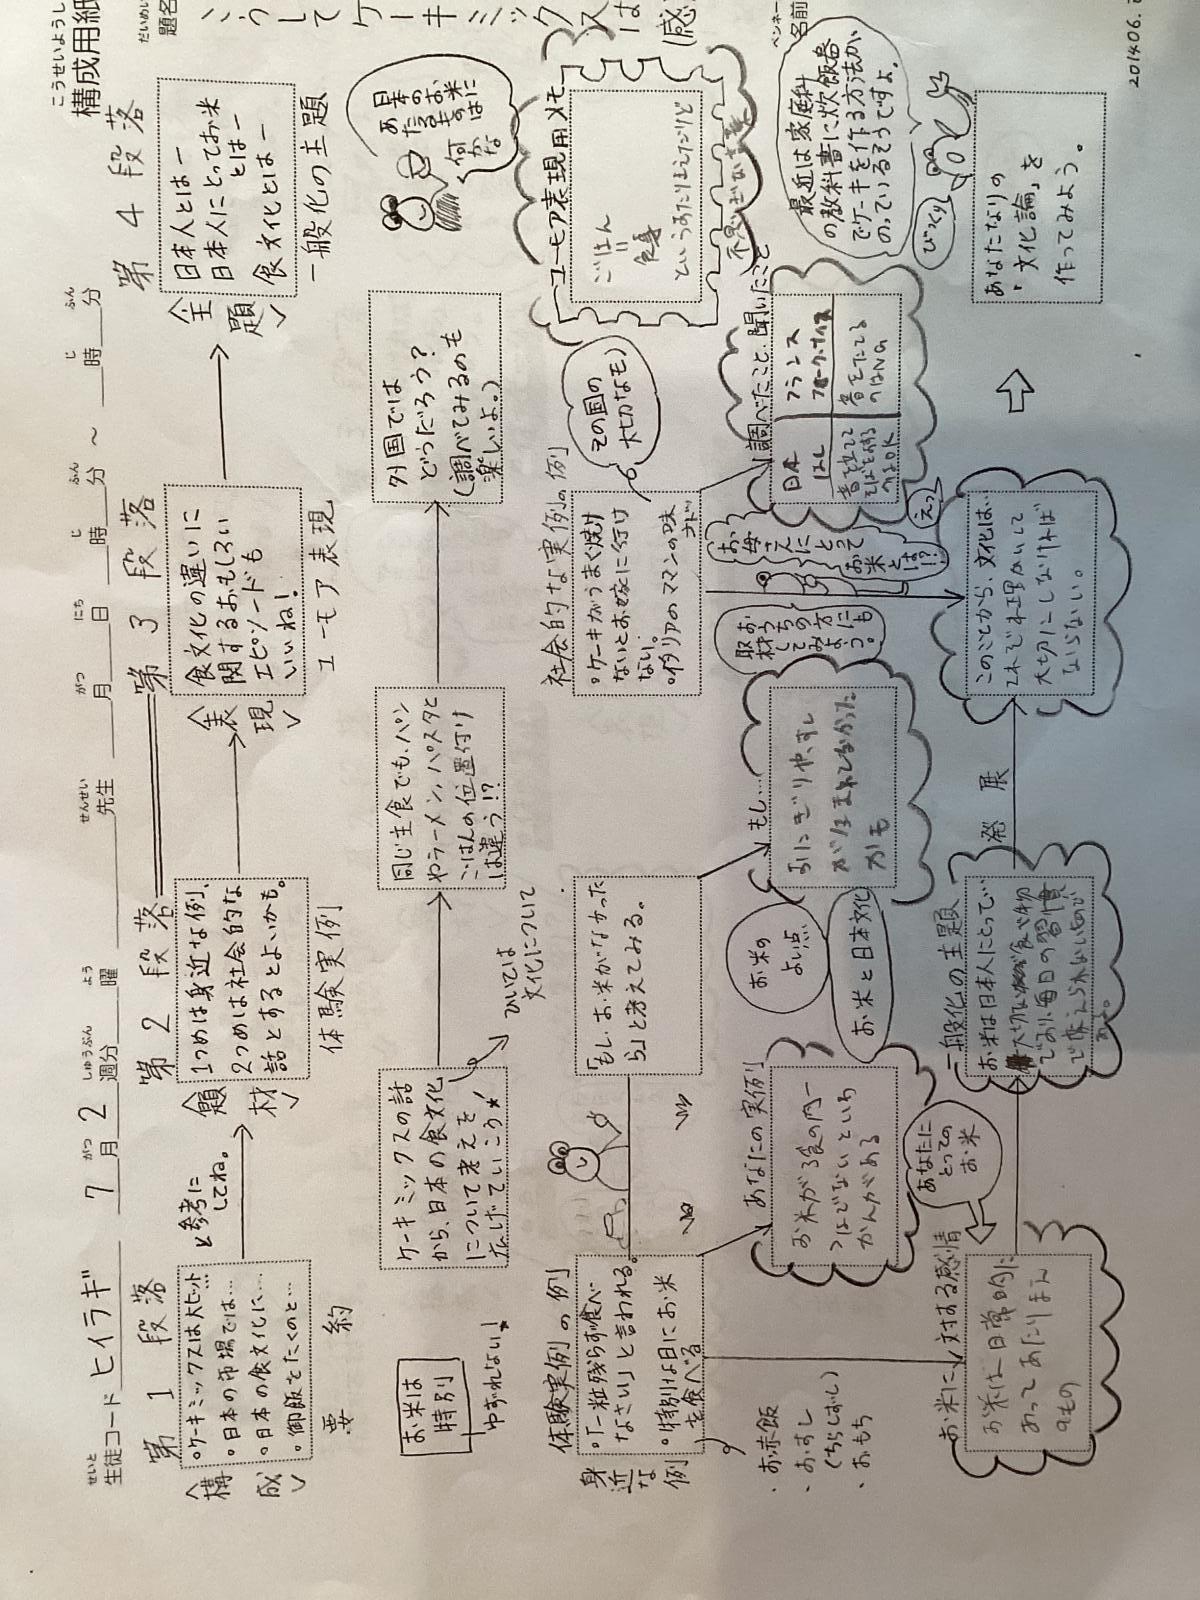 こうせいようし
構成用紙
だいめい
題名
こうしてケーキミックスは(感
ペンネーム
名前
せいと
生徒コード ヒイラギ
7 がつ 月 2 しゅうぶん 週分 よう 曜 せんせい 先生
がつ 月 にち 日 じ 時 ふん 分 ～ じ 時 ふん 分
第1段落
と参考にしてね。
第2段落
第3段落
第4段落
構成
・ケーキミックスは大ヒット…
・日本の市場では…
・日本の食文化に…
・御飯をたくのと…
要約
題材
1つめは身近な例、
2つめは社会的な
話とするとよいかも。
体験実例
表現
食文化の違いに
関するおもしろい
エピソードも
いいね!
ユーモア表現
主題
日本人とはー
日本人にとってお米
とはー
食文化とはー
一般化の主題
お米は
特別
ゆずれない!
ケーキミックスの話
から、日本の食文化
について考えを
広げていこう★
ひいては
文化について
同じ主食でも、パン
やラーメン、パスタと
ごはんの位置付け
は違う!?
外国では
どうだろう?
(調べてみるのも
楽しいよ。)
日本の
お米は
何かな
体験実例の例
身近な例
・「一粒残らず食べ
なさい」と言われる。
・特別な日にお米
を食べる
・お赤飯
・おすし
(ちらしずし)
・おもち
「もし、お米がなかった
ら」と考えてみる。
社会的な実例の例
・ケーキがうまく焼け
ないとお嫁に行け
ない。
・イタリアのママンの味
その国の
大切なモノ
ユーモア表現用メモ
ごはん
=
食事
というあたりまえだけど
あなたの実例
お米が3食の内一
つはでないといわ
かんがある
お米の
よい点
お米と日本文化
もし…
おにぎりや、すし
がうまれてなかった
かも
お母さんに
とって
お米
とは!?
取材して
おうちの方にも
みよう。
調べたこと、聞いたこと
日本
はし
音を立てて
そばをする
のはOK
フランス
フォーク・ナイフ
音をたてる
のはNG
えっ
最近は家庭科
の教科書に炊飯器
でケーキを作る方法が、
のっているそうですよ。
びっくり
お米に対する感情
お米は日常的に
あってあたりまえ
のもの
あなたに
とっての
お米
一般化の主題
お米は日本人にとって…
大切な食べ物
であり、毎日の習慣
で変えられないもので
発展
このことから、文化は…
それぞれ理解して
大切にしなければ
ならない。
あなたなりの
・「文化論」を
作ってみよう。